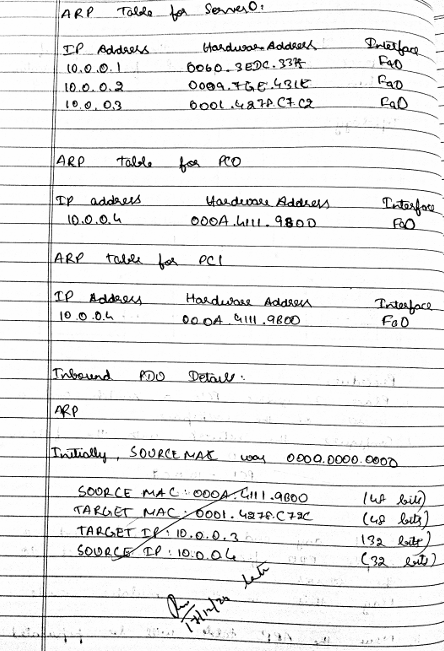 ARP Table for Server0:
IP Address Hardware Address Interface
10.0.0.1 0060.3EDC.33 Fa0
10.0.0.2 0009.7GE.431E Fa0
10.0.0.3 0001.427A.C7C2 Fa0
ARP table for PC0
IP address Hardware Address Interface
10.0.0.4 000A.4111.9800 Fa0
ARP table for PC1
IP Address Hardware Address Interface
10.0.0.4 000A.4111.9800 Fa0
Inbound PDU Details:
ARP
Initially, SOURCE MAC was 0000.0000.0000
SOURCE MAC: 000A.4111.9800 (48 bits)
TARGET MAC: 0001.427A.C72C (48 bits)
TARGET IP: 10.0.0.3 (32 bits)
SOURCE IP: 10.0.04 (32 bits)